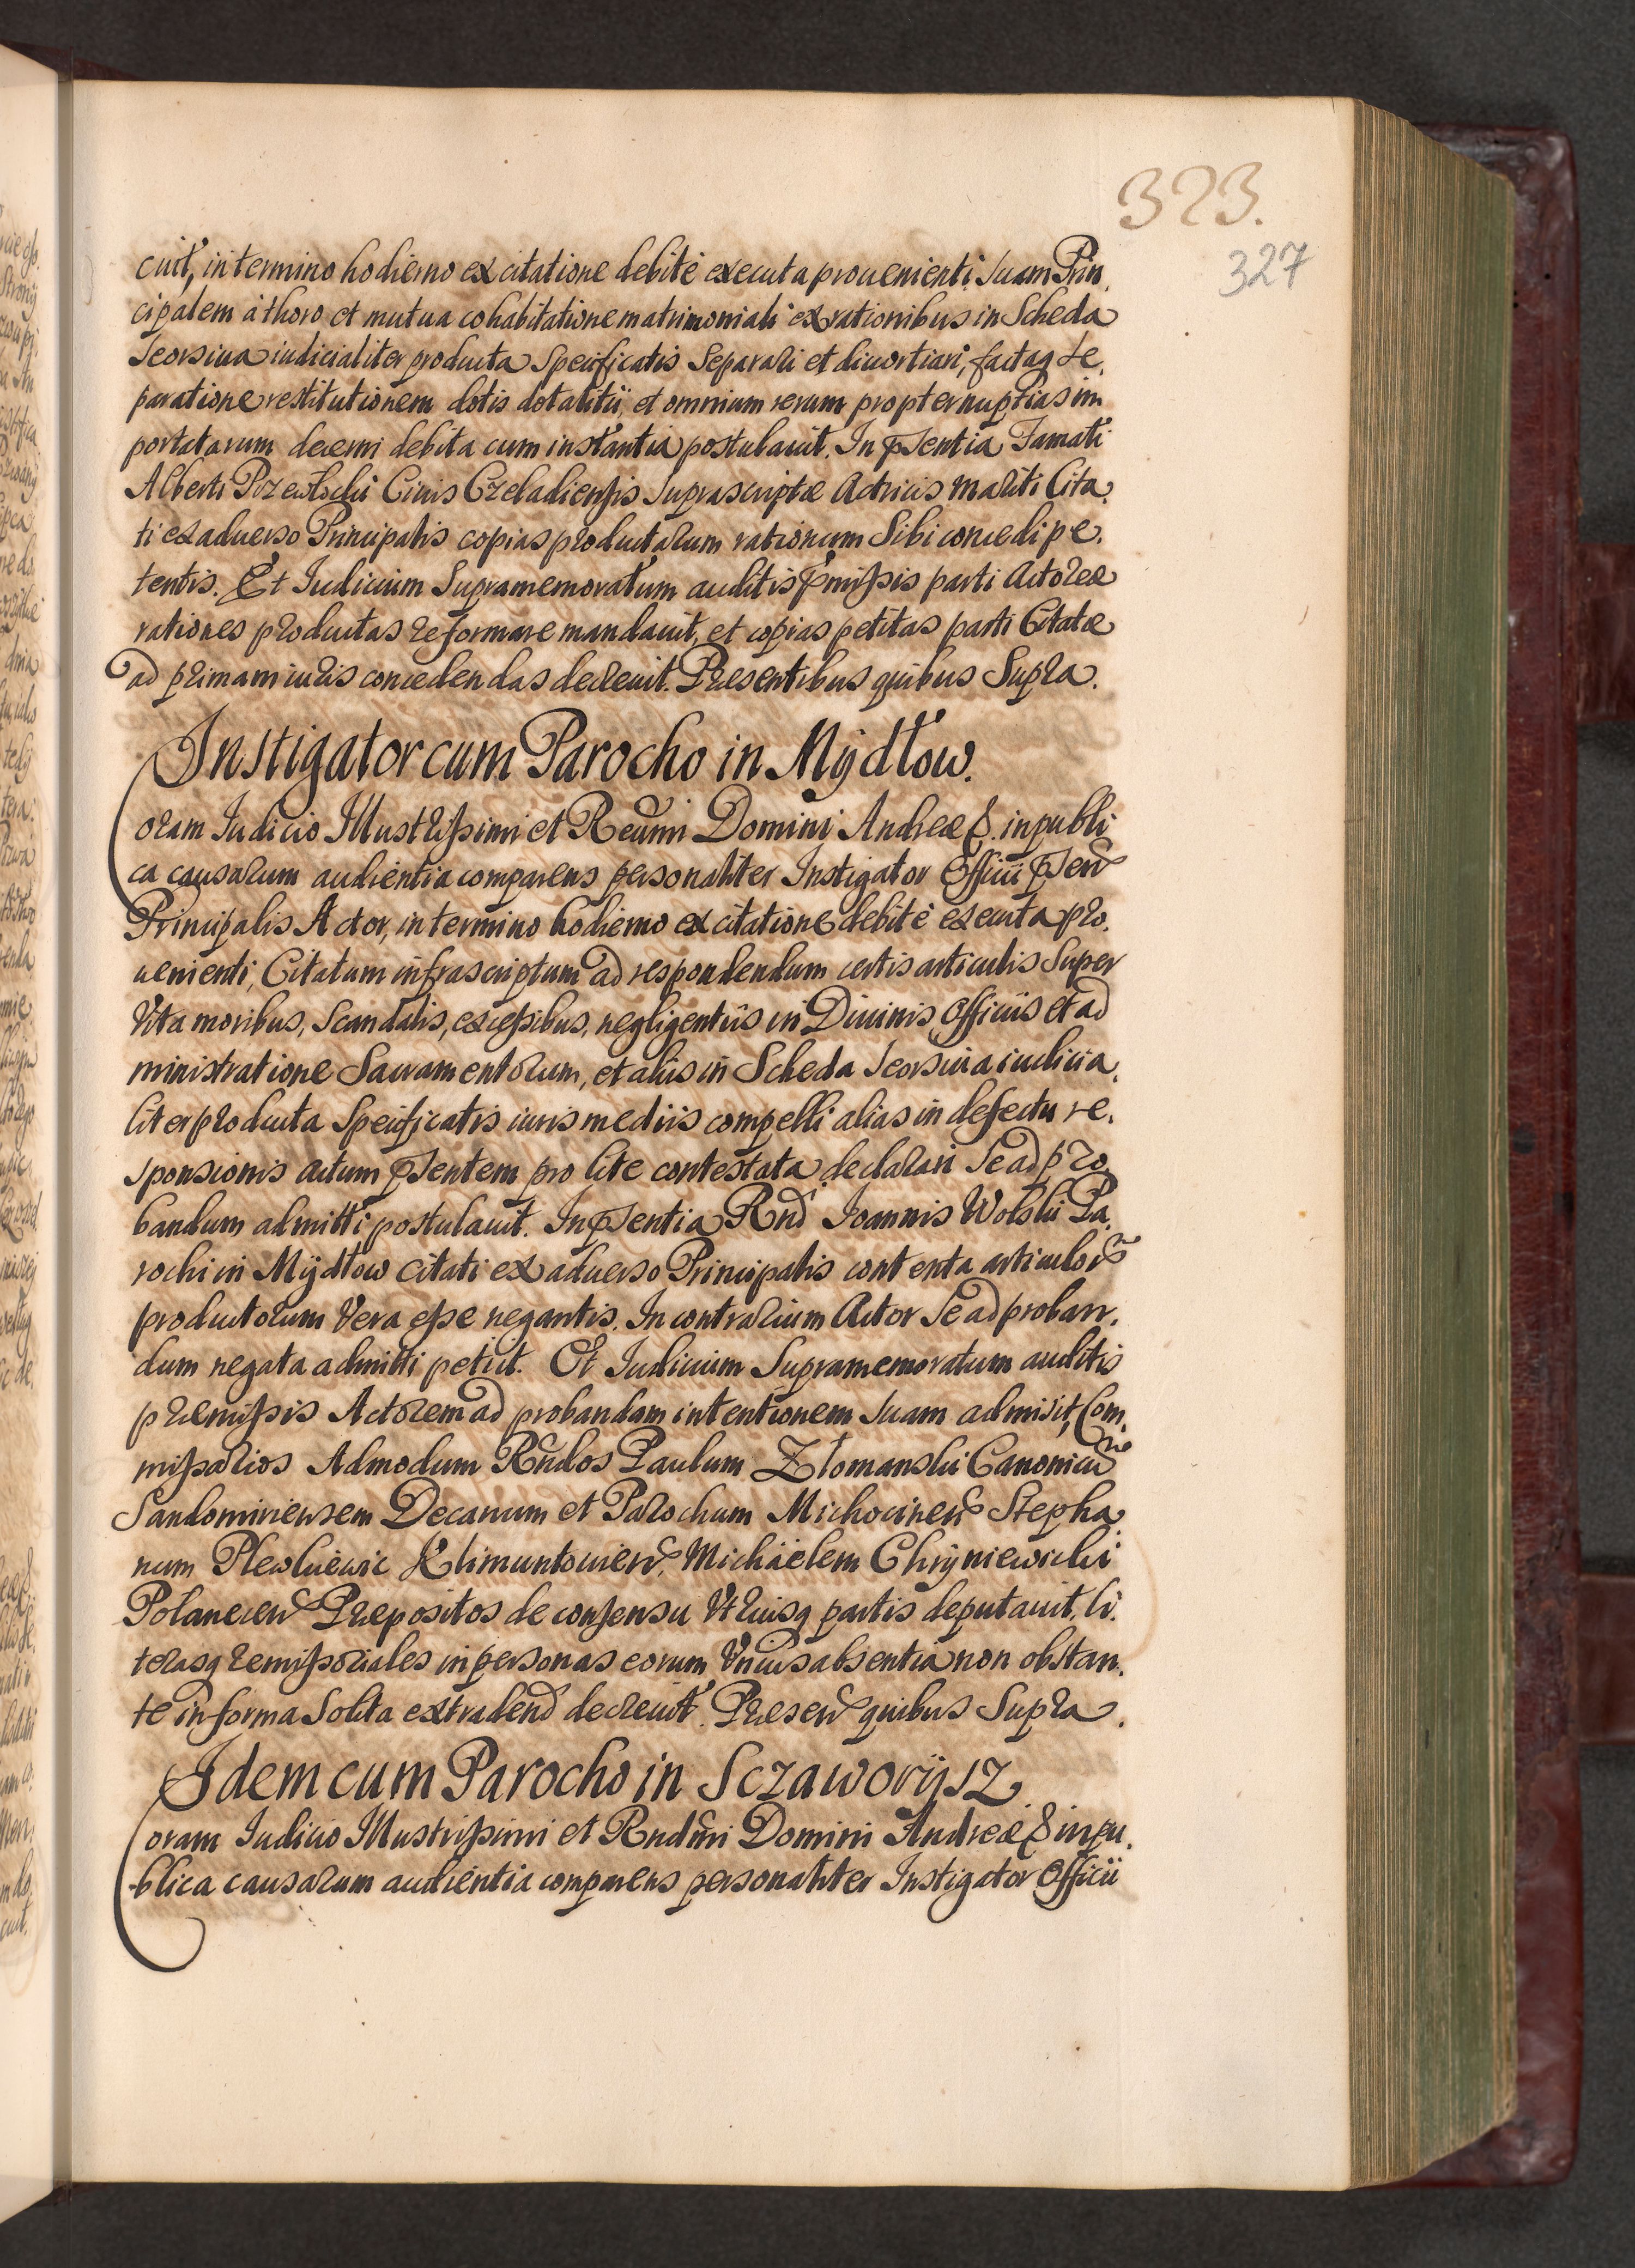 323.
327
cuit, in termino hodierno ex citatione debite executa prouenienti suam Prin,
cipalem à thoro et mutua cohabitatione matrimoniali ex rationibus in Scheda
seorsiua iudicialiter producta specificatis separari et diuortiari, factaq se,
paratione restitutionem dotis dotalitii, et omnium rerum propter nuptias im
portatarum decerni debita cum instantia postulauit. In pñsentia Famati
Alberti Ciuis Czeladiensis suprascriptæ Actricis mariti Cita,
ti ex aduerso Principalis copias productarum rationum sibi concedi pe,
tentis. Et Iudicium Supramemoratum auditis pmissis parti Actoreæ
rationes productas reformare mandauit, et copias petitas parti Citatæ
ad primam iuris concedendas decreuit. Præsentibus quibus Supra.
Instigator cum Parocho in Mÿdłow.
Coram Iudicio Illustrissimi et Reũmi Domini Andreæ &. in publi
ca causarum audientia comparens personaliter Instigator Officii pñsen
Principalis Actor, in termino hodierno ex citatione debite executa pro,
uenienti, Citatum infrascriptum ad respondendum certis articulis super
vita moribus, scandalis, excessibus, negligentiis in Diuinis Officiis et ad
ministratione Sacramentorum, et aliis in Scheda seorsiua iudicia,
liter producta specificatis iuris mediis compelli alias in defectu re,
sponsionis actum pñsentem pro lite contestata declarari se ad pro,
bandum admitti postulauit. In pñsentia Rnd Ioannis Wolski Pa,
rochi in Mÿdłow citati ex aduerso Principalis contenta articulor
productorum vera esse negantis. In contrarium Actor se ad proban,
dum negata admitti petiit. Et Iudicium Supramemoratum auditis
præmissis Actorem ad probandam intentionem suam admisit, Com,
missarios Admodum Rñdos Paulum Złomanski Canonicũ
Sandomiriensem Decanum et Parochum Michocinen Stepha,
num Plewkiewic Klimuntouien, Michaelem Chryniewicki
Polanecen Præpositos de consensu vtriusq partis deputauit, li,
terasq remissoriales in personas eorum vnius absentia non obstan,
te in forma solita extradend decreuit. Præsen quibus Supra.
Idem cum Parocho in Sczaworÿsz
Coram Iudicio Illustrissimi et Rndmi Domini Andreæ & in pu,
blica causarum audientia comparens personaliter Instigator Officii